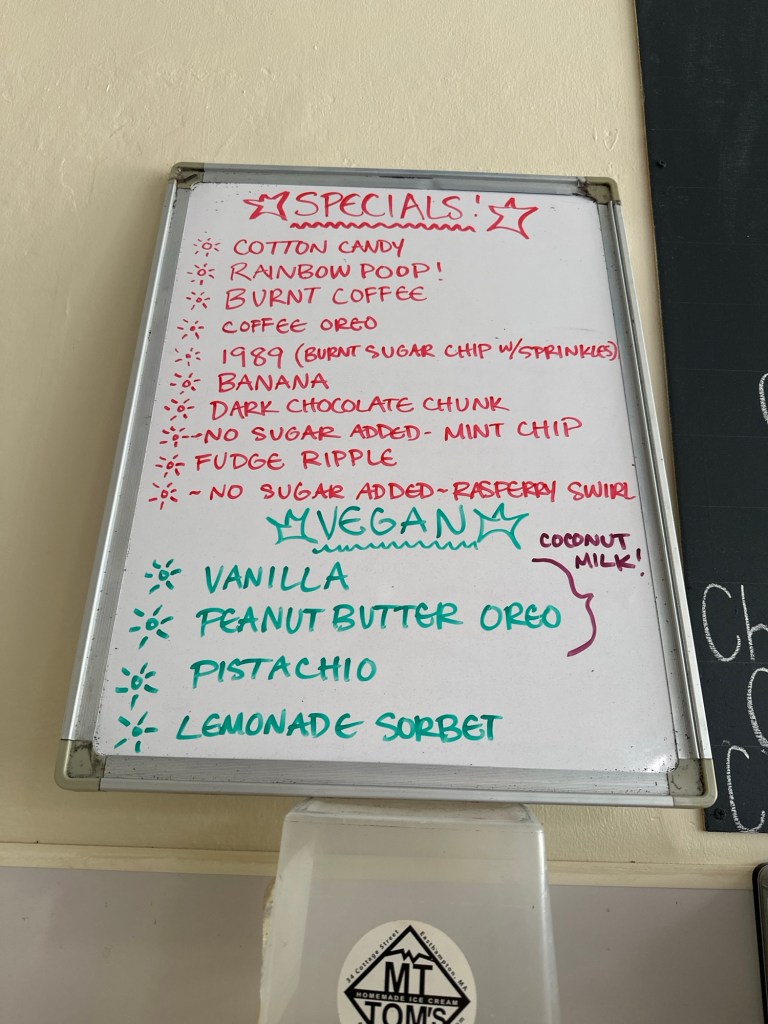 SPECIALS!
COTTON CANDY
RAINBOW POOP!
BURNT COFFEE
COFFEE OREO
1989 (BURNT SUGAR CHIP W/SPRINKLES)
BANANA
DARK CHOCOLATE CHUNK
~NO SUGAR ADDED- MINT CHIP
FUDGE RIPPLE
~ NO SUGAR ADDED~RASPERRY SWIRL
VEGAN
COCONUT
MILK!
VANILLA
PEANUT BUTTER OREO
PISTACHIO
LEMONADE SORBET
Ch
C
34 Cottage Street Easthampton, MA
MT
HOMEMADE ICE CREAM
TOM'S